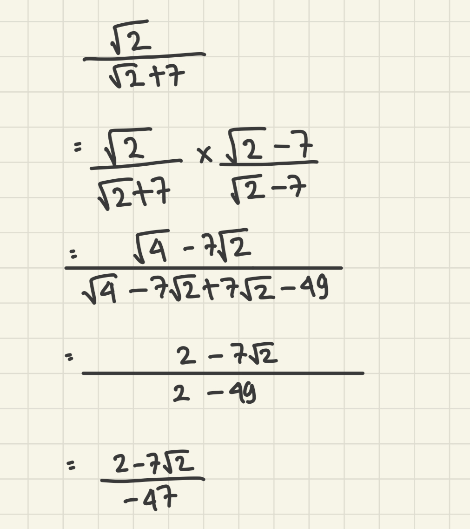 √2
√2+7
= √2 × √2 -7
√2+7 √2 -7
= √4 - 7√2
√4 - 7√2 + 7√2 - 49
= 2 - 7√2
2 - 49
= 2 - 7√2
- 47